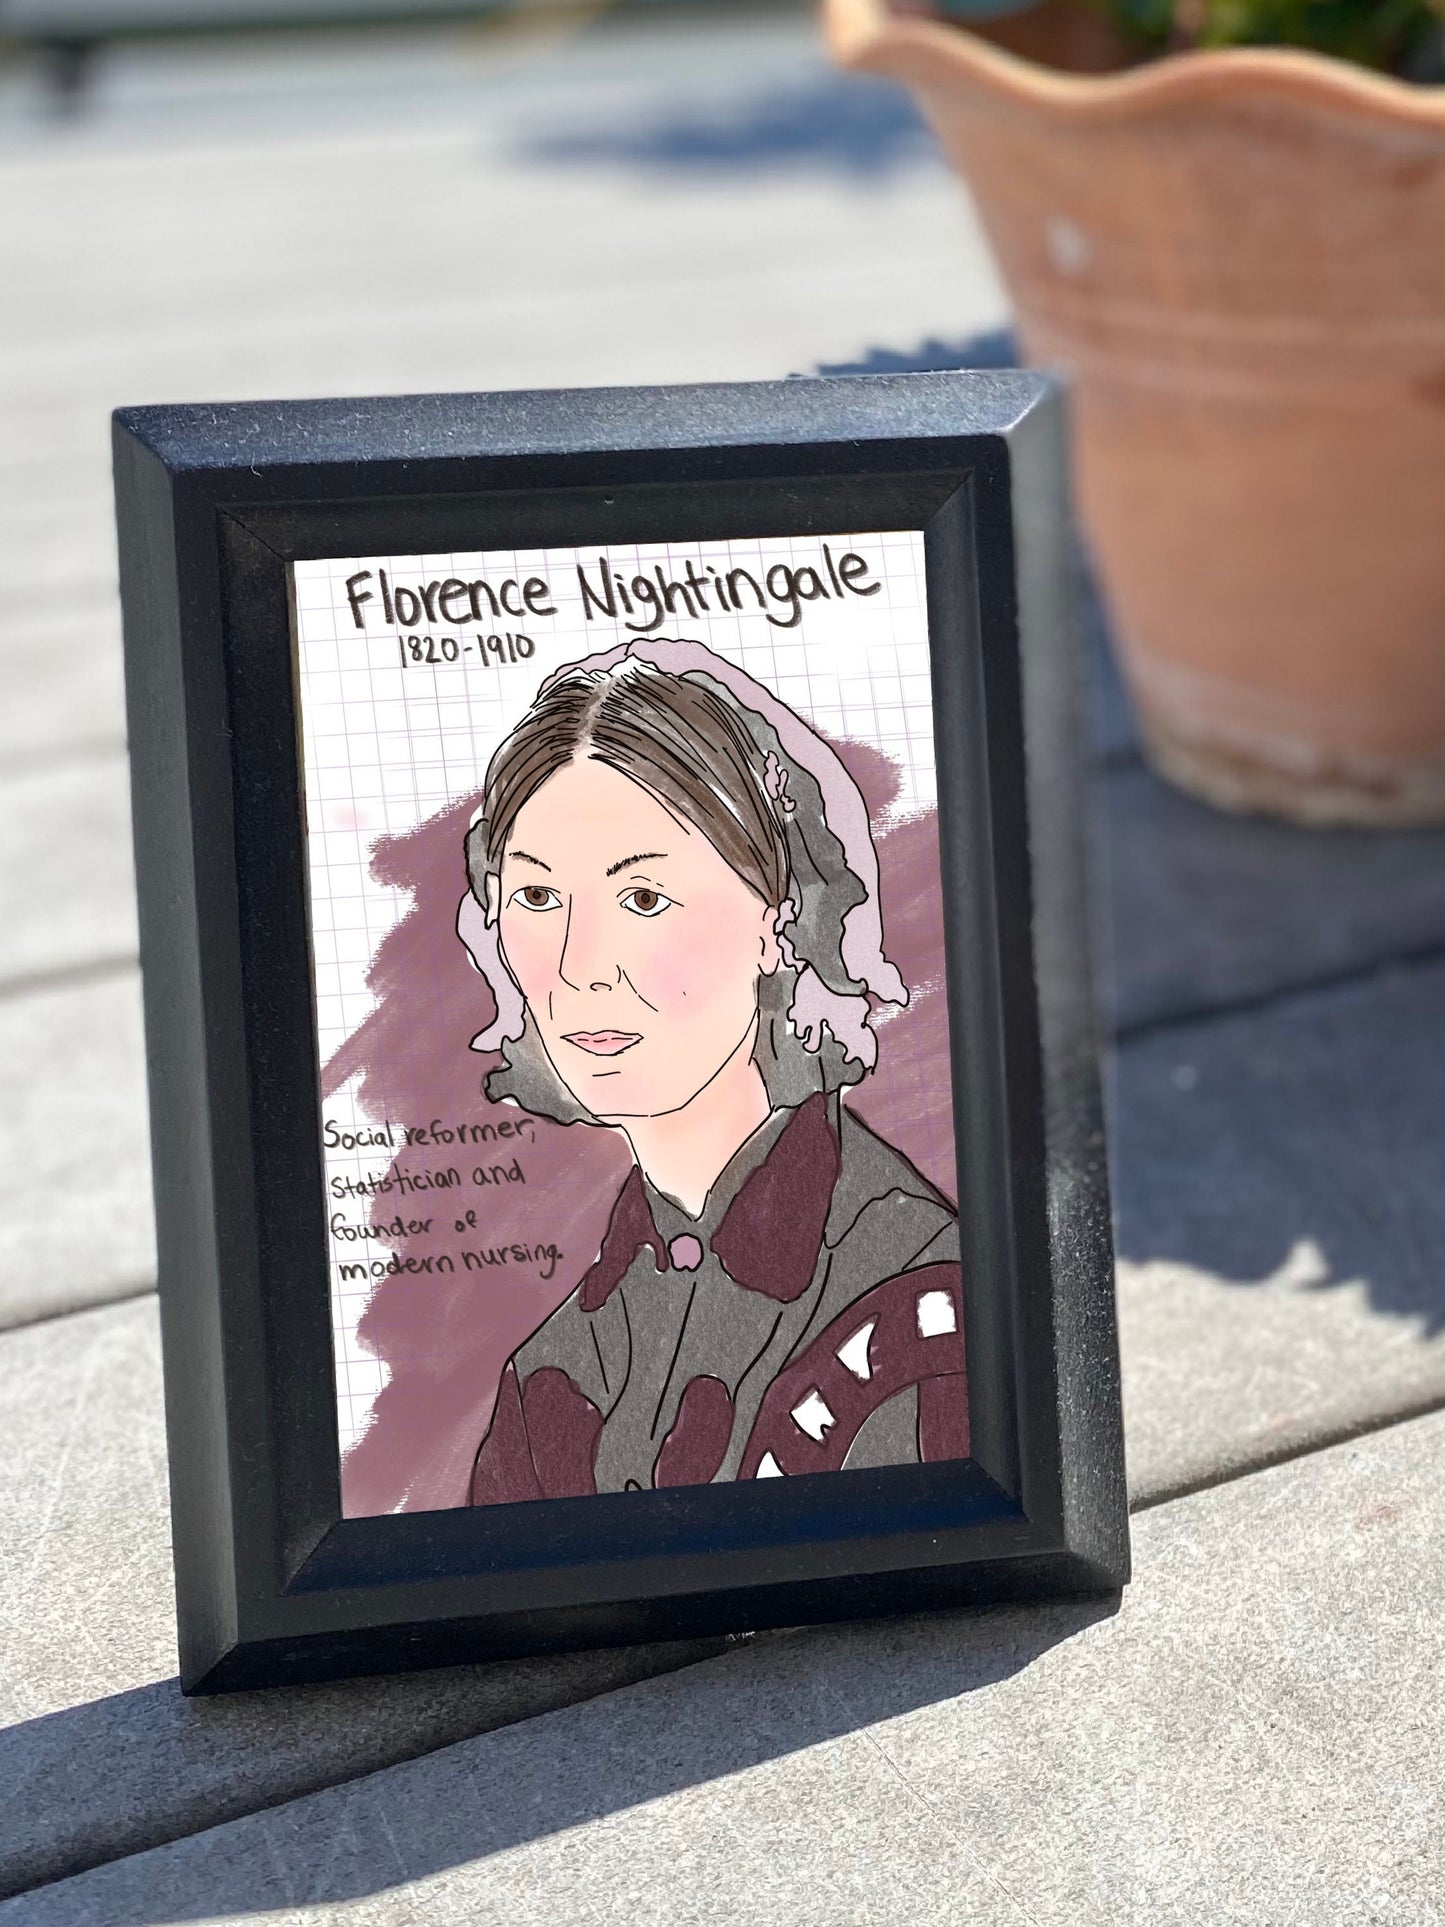 Florence Nightingale
1820-1910
Social reformer,
Statistician and
founder of
modern nursing.